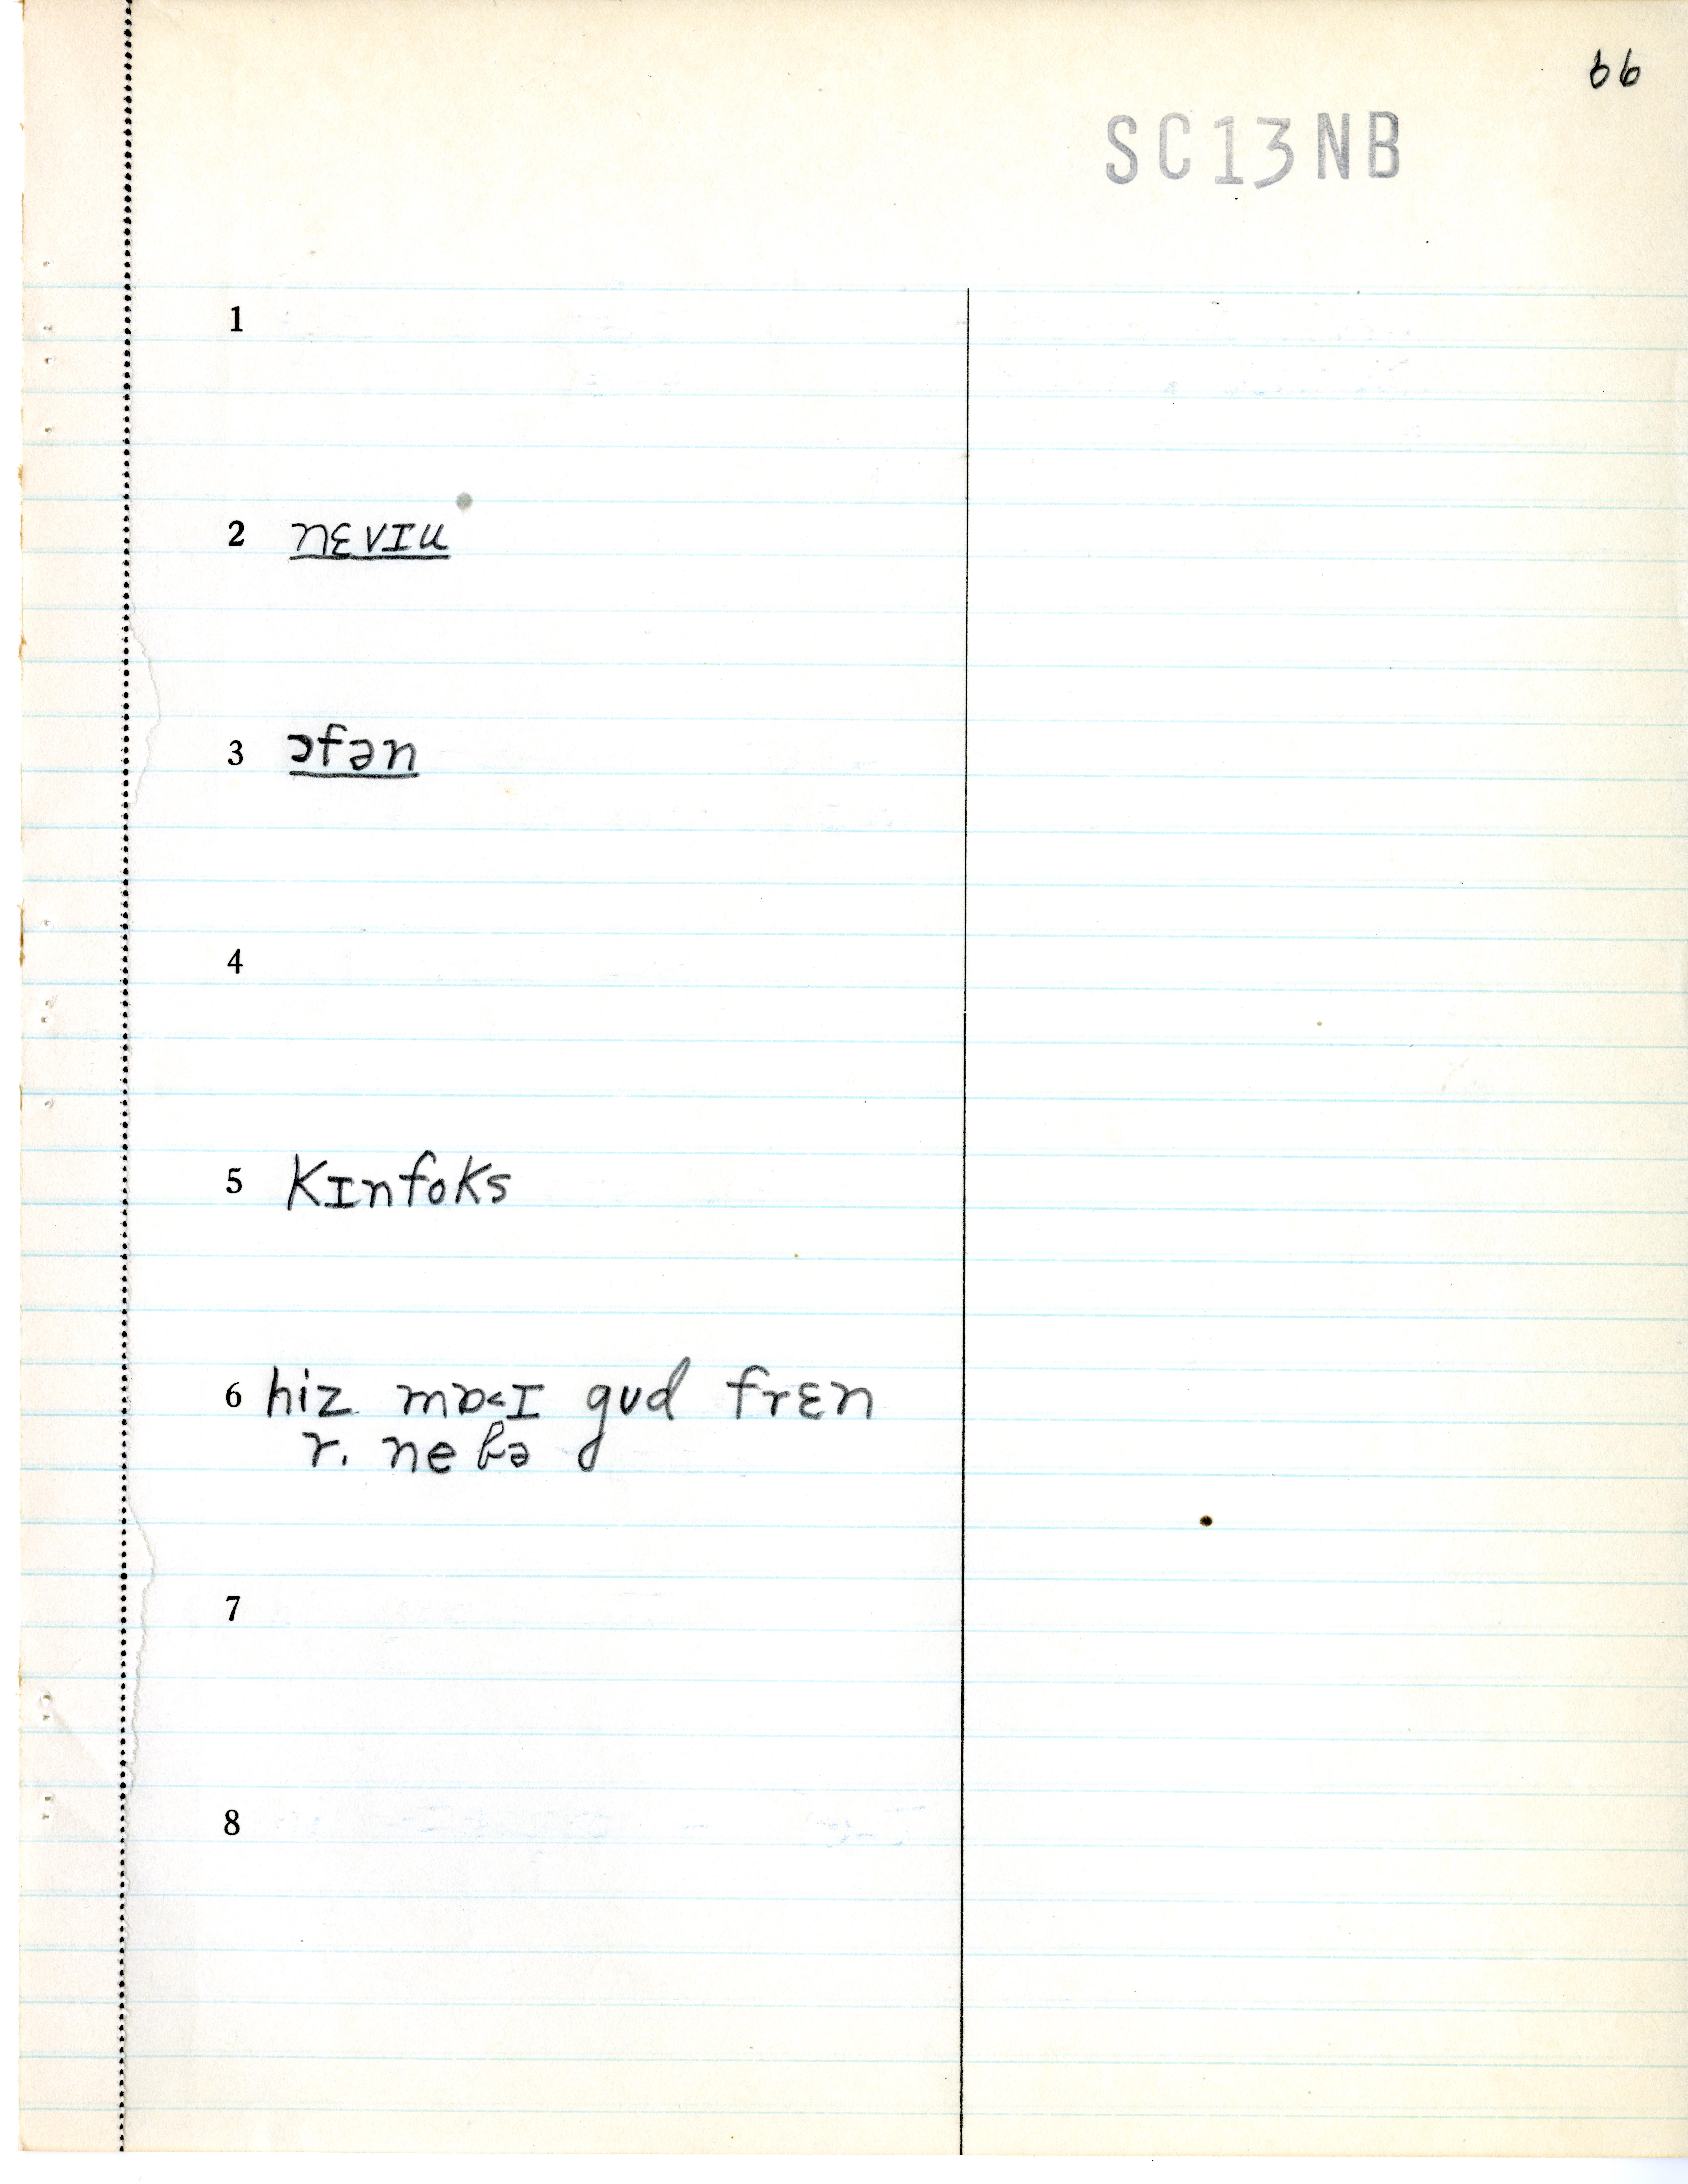 66
SC13NB
1
2 nɛvɪu
3 ɔfən
4
5 kɪnfoks
6 hiz mɒ<ɪ gʊd frɛn
r. nebə
7
8